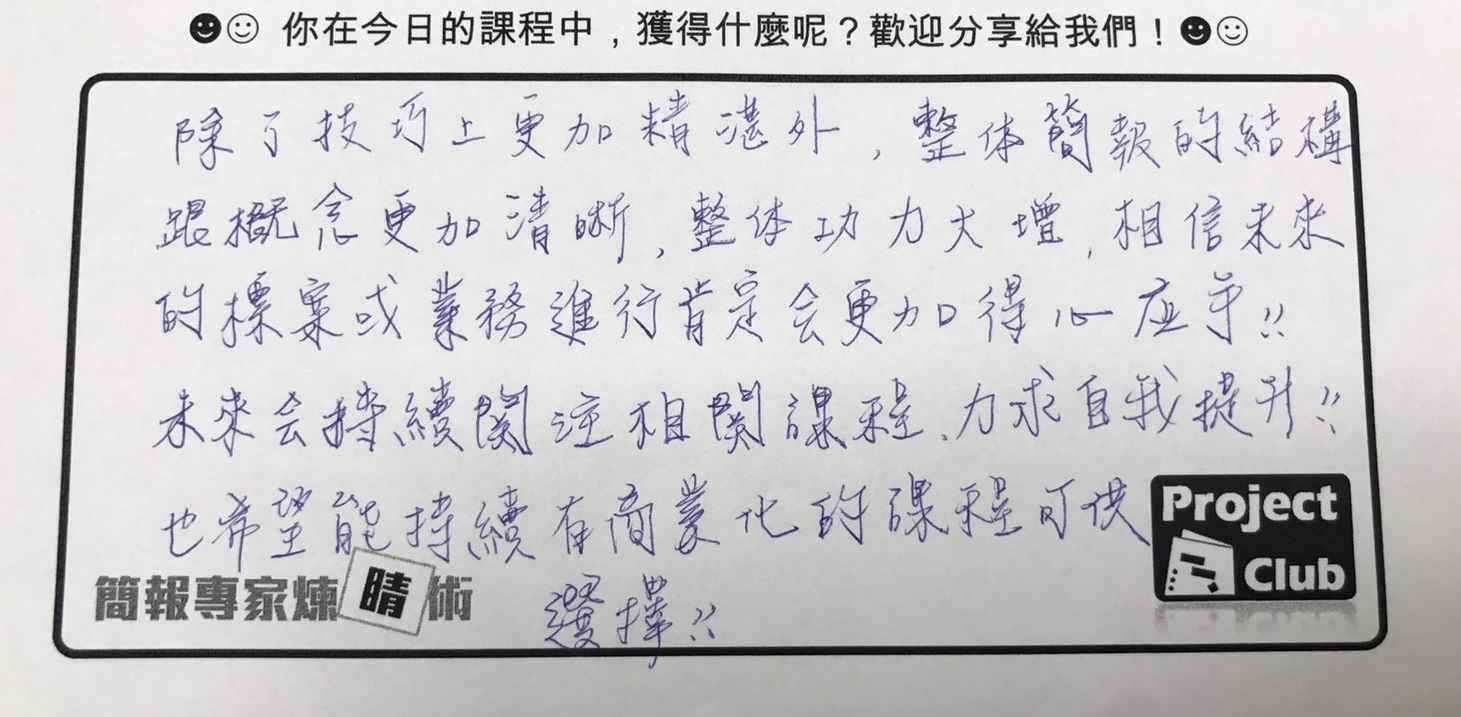 ☻☺ 你在今日的課程中，獲得什麼呢？歡迎分享給我們！☻☺
除了技巧上更加精湛外，整体簡報的結構
跟概念更加清晰，整体功力大增，相信未來
的標案或業務進行肯定会更加得心应手!!
未來会持續関注相関課程，力求自我提升!!
也希望能持續有商業化的課程可供
選擇!!
簡報專家煉睛術
Project
Club